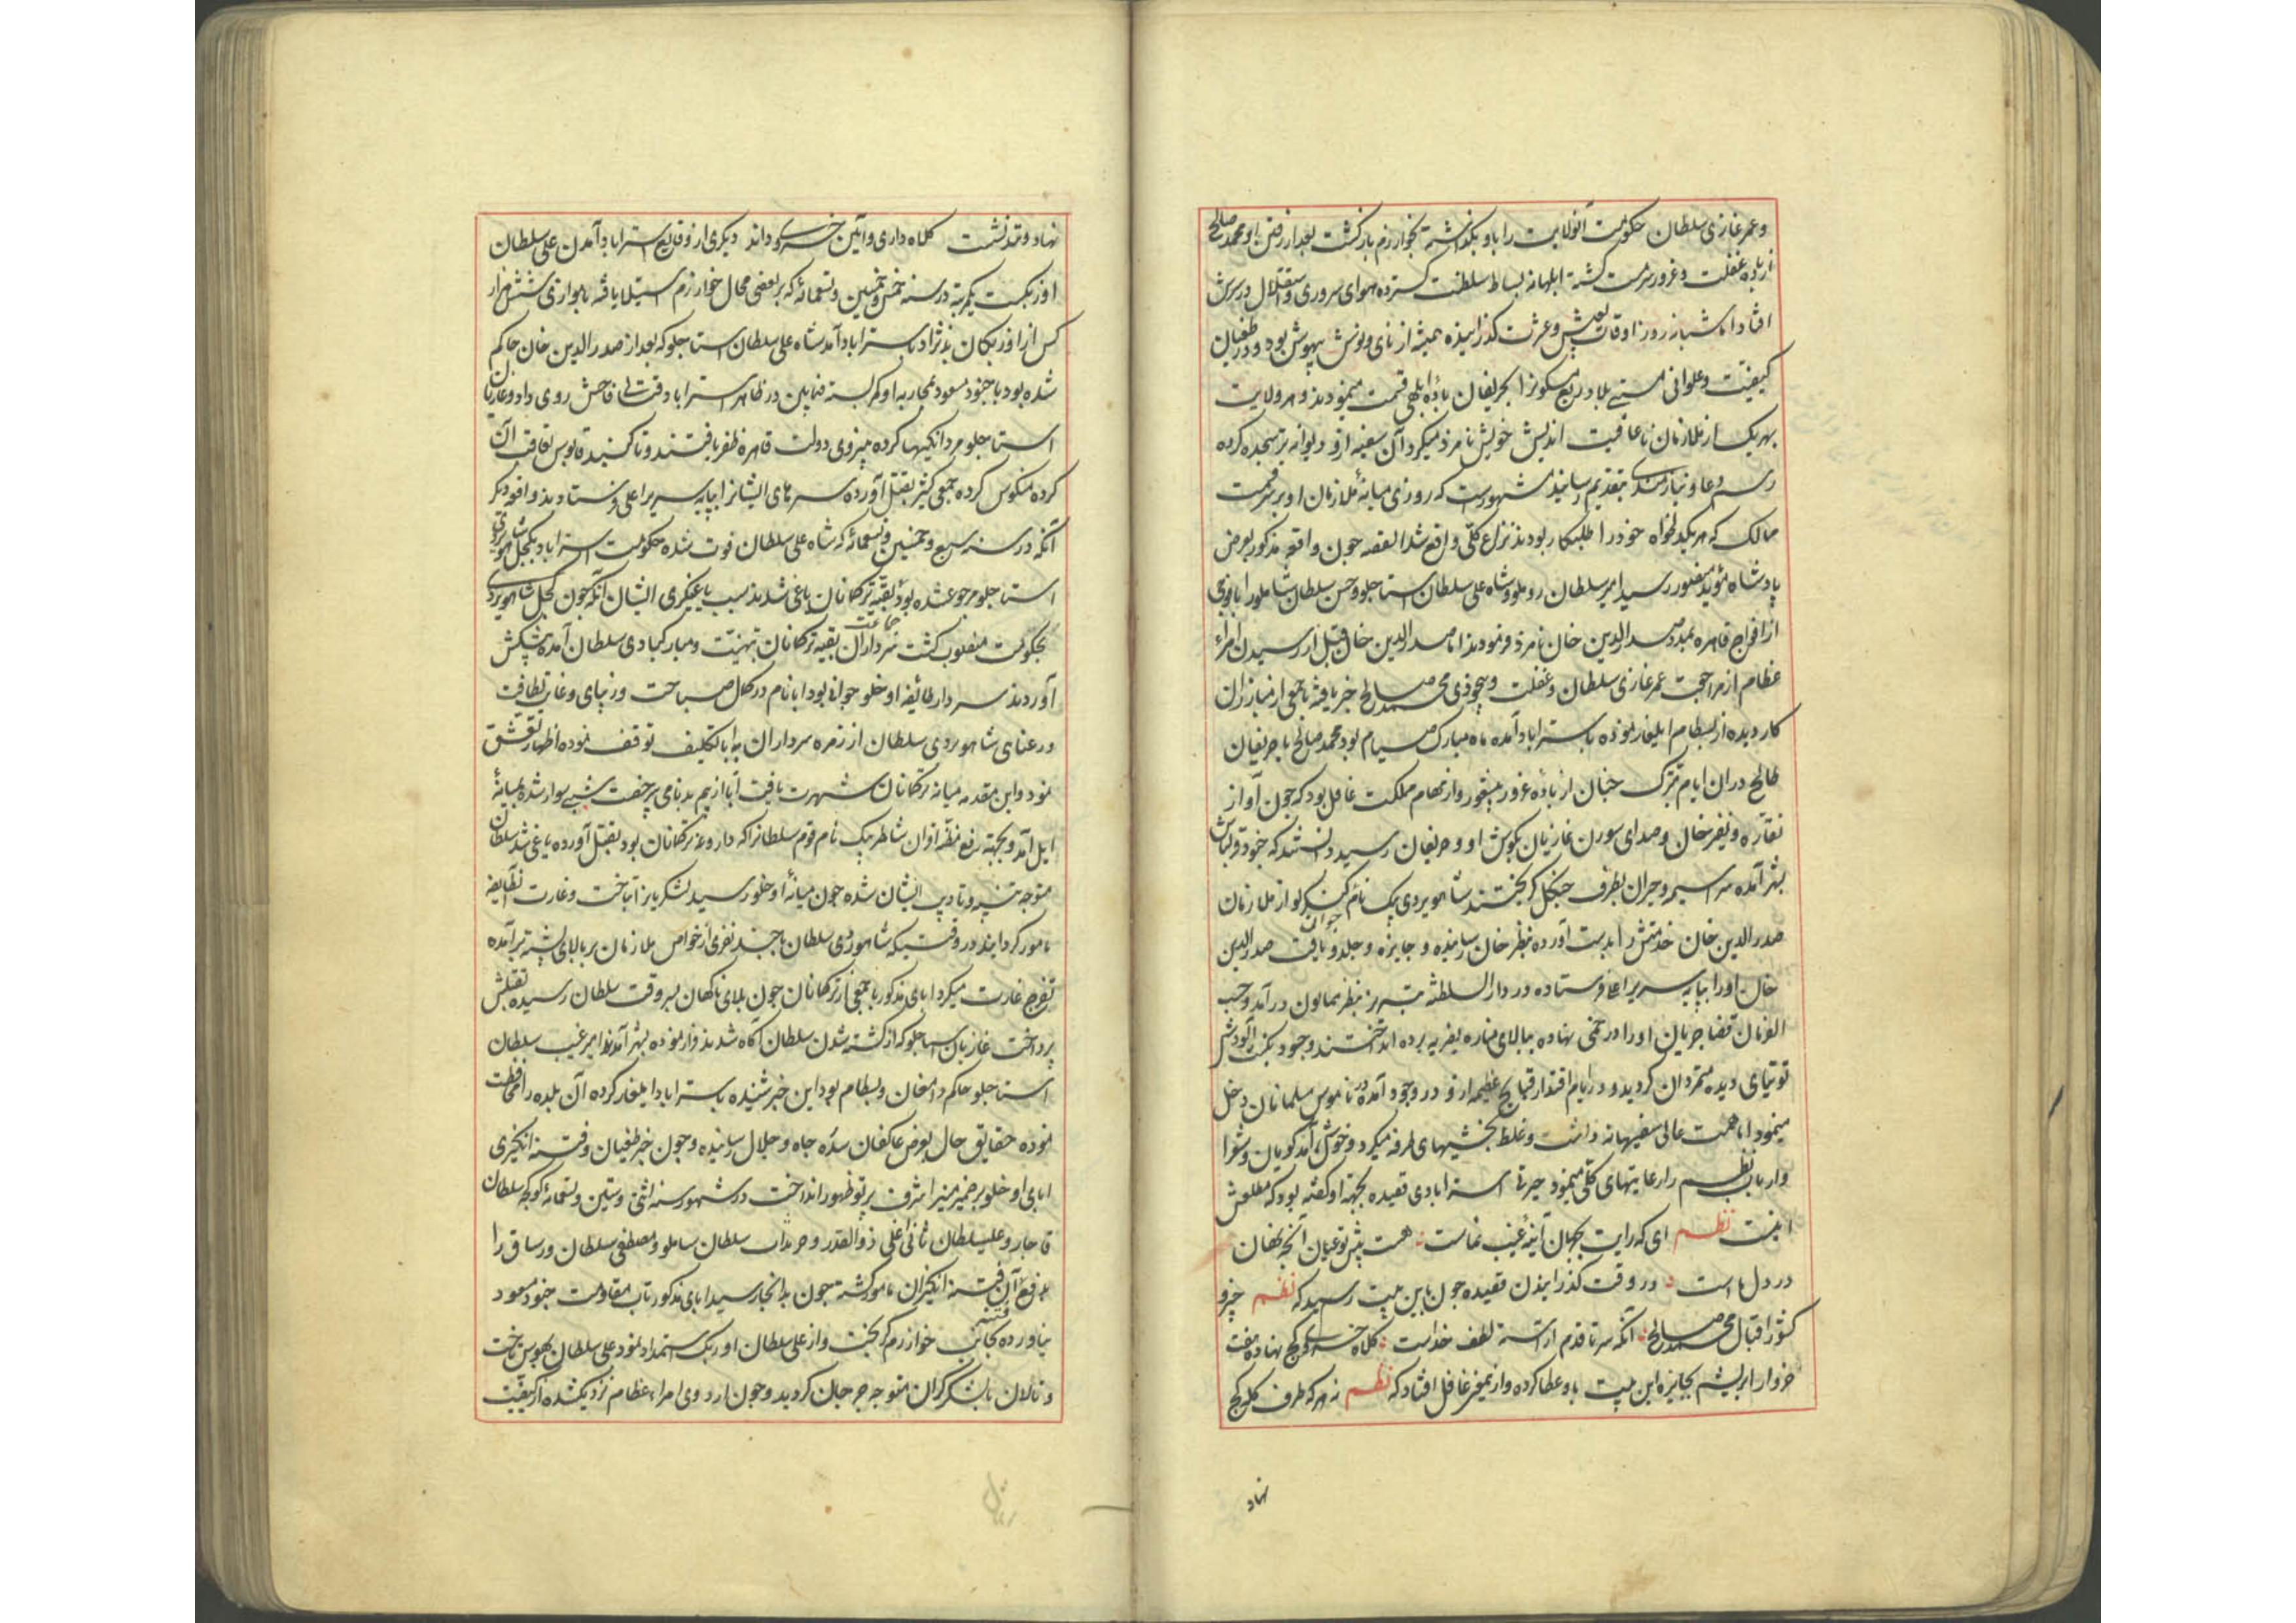 وعمر غازی سلطان حکومت آنولایت را باو بگذاشته بخوارزم بازگشت بعد از رفتن او محمد صالح
از باده غفلت و غرور سرمست گشته ابلهانه بساط سلطنت گسترده هوای سروری و استقلال در سرش
افتاد اما شبانه روز اوقات بعیش و عشرت گذرانیده همیشه از نای و نوش بیهوش بود و در طغیان
کیفیت و علوای مستی بلاد ربع مسکونرا بحریفان باده ابلهی قسمت مینمودند و هر ولایت
بهریک از ملازمان ناعاقبت اندیش خویش نامزد میکرد آن سفیه ازو دیوانه تر سجده کرده
رسم دعا و نیازمندی بتقدیم رسانید مشهورست که روزی میانهٔ ملازمان او بر سر قسمت
ممالک که هریک دلخواه خود را طلبکار بودند نزاع کلی واقع شد القصه چون واقعه مذکور بعرض
پادشاه مؤید منصور رسید امیر سلطان روملو و شاه علی سلطان استاجلو و حسن سلطان شاملو را با فوجی
از افواج قاهره بمدد صدرالدین خان نامزد فرمودند اما صدرالدین خان قبل از رسیدن امراء
عظام از مراجعت عمر غازی سلطان و غفلت و بیخودی محمد صالح خبر یافته با جمعی از مبارزان
کار دیده از بسطام ایلغار نموده باستراباد آمده ماه مبارک صیام بود محمد صالح با حریفان
طالح در ان ایام متبرک چنان از بادهٔ غرور بیشعور و از مهام مملکت غافل بود که چون آواز
نقاره و نفیر خان و صدای سورن غازیان بگوش او و حریفان رسید دانستند که خود قزلباش
بشهر آمده سراسیمه و حیران بطرف جنگل گریختند شاهویردی بیک نام کنگرلو از ملازمان
صدرالدین خان خدمتش را بدست آورده بنظر خان رسانیده و جایزه و جلدو یافت جوان صدرالدین
خان او را بپایه سریر اعلا فرستاده در دار السلطنه تبریز بنظر همایون درآمد و حسب
الفرمان قضا جریان او را در خمی نهاده ببالای مناره نصریه برده انداختند وجود نکبت آلودش
توتیای دیده متمردان گردید و در ایام اقتدار قبایح عظیمه ازو در وجود آمده در ناموس مسلمانان دخل
مینمود اما همت عالی سفیهانه داشت و غلط بخشیهای طرفه میکرد و خوش آمد گویان و شعرا
و ارباب نظم را رعایتهای کلی مینمود حیرتی استرابادی قصیده بجهة او گفته بود که مطلعش
اینست نظم ای که رایت بجهان آینهٔ غیب نماست هست پیش تو عیان آنچه نهان
در دل ماست در وقت گذرانیدن قصیده چون باین بیت رسید که نظم خسرو
کشور اقبال محمد صالح آنکه سر تا قدم آراسته لطف خداست کلاه خسروی کج نهاده هفت
خروار ابریشم بجایزه این بیت باو عطا کرده و ازینمعنی غافل افتاد که نظم نه هر که طرف کله کج
نهاد
نهاد و تند نشست کلاه داری و آئین خسروی داند دیگری از وقایع استراباد آمدن علی سلطان
اوزبکست یکمرتبه در سنه خمس و خمسین و تسعمائه که بر بعضی محال خوارزم استیلا یافته با موازی شش هزار
کس از اوزبکان بدنژاد باستراباد آمد شاه علی سلطان استاجلو که بعد از صدرالدین خان حاکم
شده بود با جنود مسعود بمحاربه او کمر بسته فیمابین در ظاهر استراباد قتالی فاحش روی داد و غازیان
استاجلو مردانگیها کرده بنیروی دولت قاهره ظفر یافتند و تا گنبد قابوس تعاقب آن
کرده منکوس کرده جمعی کثیر بقتل آورده سرهای ایشانرا بپایه سریر اعلی فرستادند و واقعه دیگر
آنکه در سنه سبع و خمسین و تسعمائه که شاه علی سلطان فوت شده حکومت استراباد بکجل شاهویردی
استاجلو مرجوعشده بود بقیه ترکمانان یاغی شدند سبب یاغیگری ایشان آنکه چون کجل شاهویردی
بحکومت منصوب گشت سرداران جماعت بقیه ترکمانان بتهنیت و مبارکبادی سلطان آمده پیشکش
آوردند سردار طائفه اوخلو جوانی بود ابا نام در کمال صباحت و زیبای و غایت لطافت
و رعنای شاهویردی سلطان از زمره سرداران به ابا تکلیف توقف نموده اظهار تعشق
نمود و این مقدمه میانه ترکمانان شهرت یافت ابا از بیم بدنامی بر جفت شبی سوار شده بمیانهٔ
ایل آمد و بجهة رفع مظنه اقوان شاطر بیک نام قوم سلطانرا که داروغه ترکمانان بود بقتل آورده یاغی شد سلطان
متوجه تنبیه و تادیب ایشان شده چون میانهٔ اوخلو رسید لشکریانرا بتاخت و غارت نطایفه
مامور گردانید در وقتیکه شاهویردی سلطان با چند نفری از خواص ملازمان بر بالای پشته برآمده
تفرج غارت میکرد ابای مذکور با جمعی از ترکمانان چون بلای ناگهان بسر وقت سلطان رسیده بقتلش
پرداخت غازیان استاجلو که از کشته شدن سلطان آگاه شدند فرار نموده بشهر آمدند امیر غیب سلطان
استاجلو حاکم دامغان و بسطام بود این خبر شنیده باستراباد ایلغار کرده آن بلده را محافظت
نموده حقایق حال بعرض عاکفان سدهٔ جاه و جلال رسانیده و چون خبر طغیان و فتنه انگیزی
ابای اوخلو بر ضمیر منیر اشرف پرتو ظهور انداخت در شهور سنه اثنی و ستین و تسعمائه کوکجه سلطان
قاجار و علی سلطان ثانی اغلی ذوالقدر و سلطان ساملو و مصطفی سلطان ورساق را
بدفع آن فتنه انگیزان مامور گشته چون بدانجا رسید ابای مذکور تاب مقاومت جنود مسعود
نیاورده بجانب خوارزم گریخت و از علی سلطان اوزبک استمداد نمود علی سلطان بهوس تاخت
و تالان با لشکر گران متوجه جرجان گردید و چون اردوی امراء عظام نزدیکشده از کیفیت